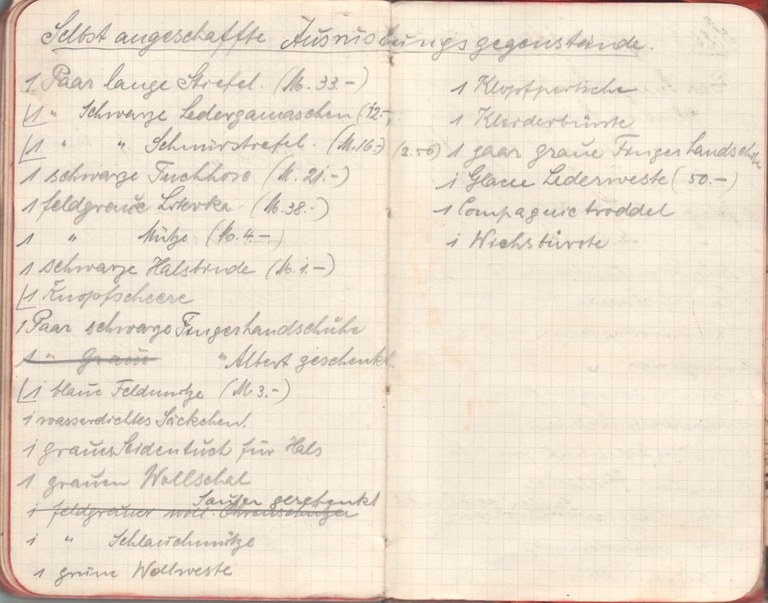 Selbst angeschaffte Ausrüstungsgegenstände.
1 Paar lange Stiefel. (M. 33.-)
1 " Schwarze Ledergamaschen (12.-
1 " " Schnürstiefel. (M. 16.-)
1 schwarze Tuchhose (M. 21.-)
1 feldgraue Litevka (M. 38.-)
1 " Mütze (M. 4.-)
1 schwarze Halsbinde (M. 1.-)
1 Knopfscheere
1 Paar schwarze Fingerhandschuhe
1 " Graue " Albert geschenkt
1 blaue Feldmütze (M 3.-)
1 wasserdichtes Säckchen.
1 graues Seidentuch für Hals
1 grauen Wollschal
Sauter geschenkt
1 feldgrauer woll. Ohrenschützer
1 " Schlauchmütze
1 grüne Wollweste
1 Klopfpeitsche
1 Kleiderbürste
(2.50) 1 paar graue Fingerhandschuhe
1 Lederweste (50.-)
1 Compagnietroddel
1 Wichsbürste